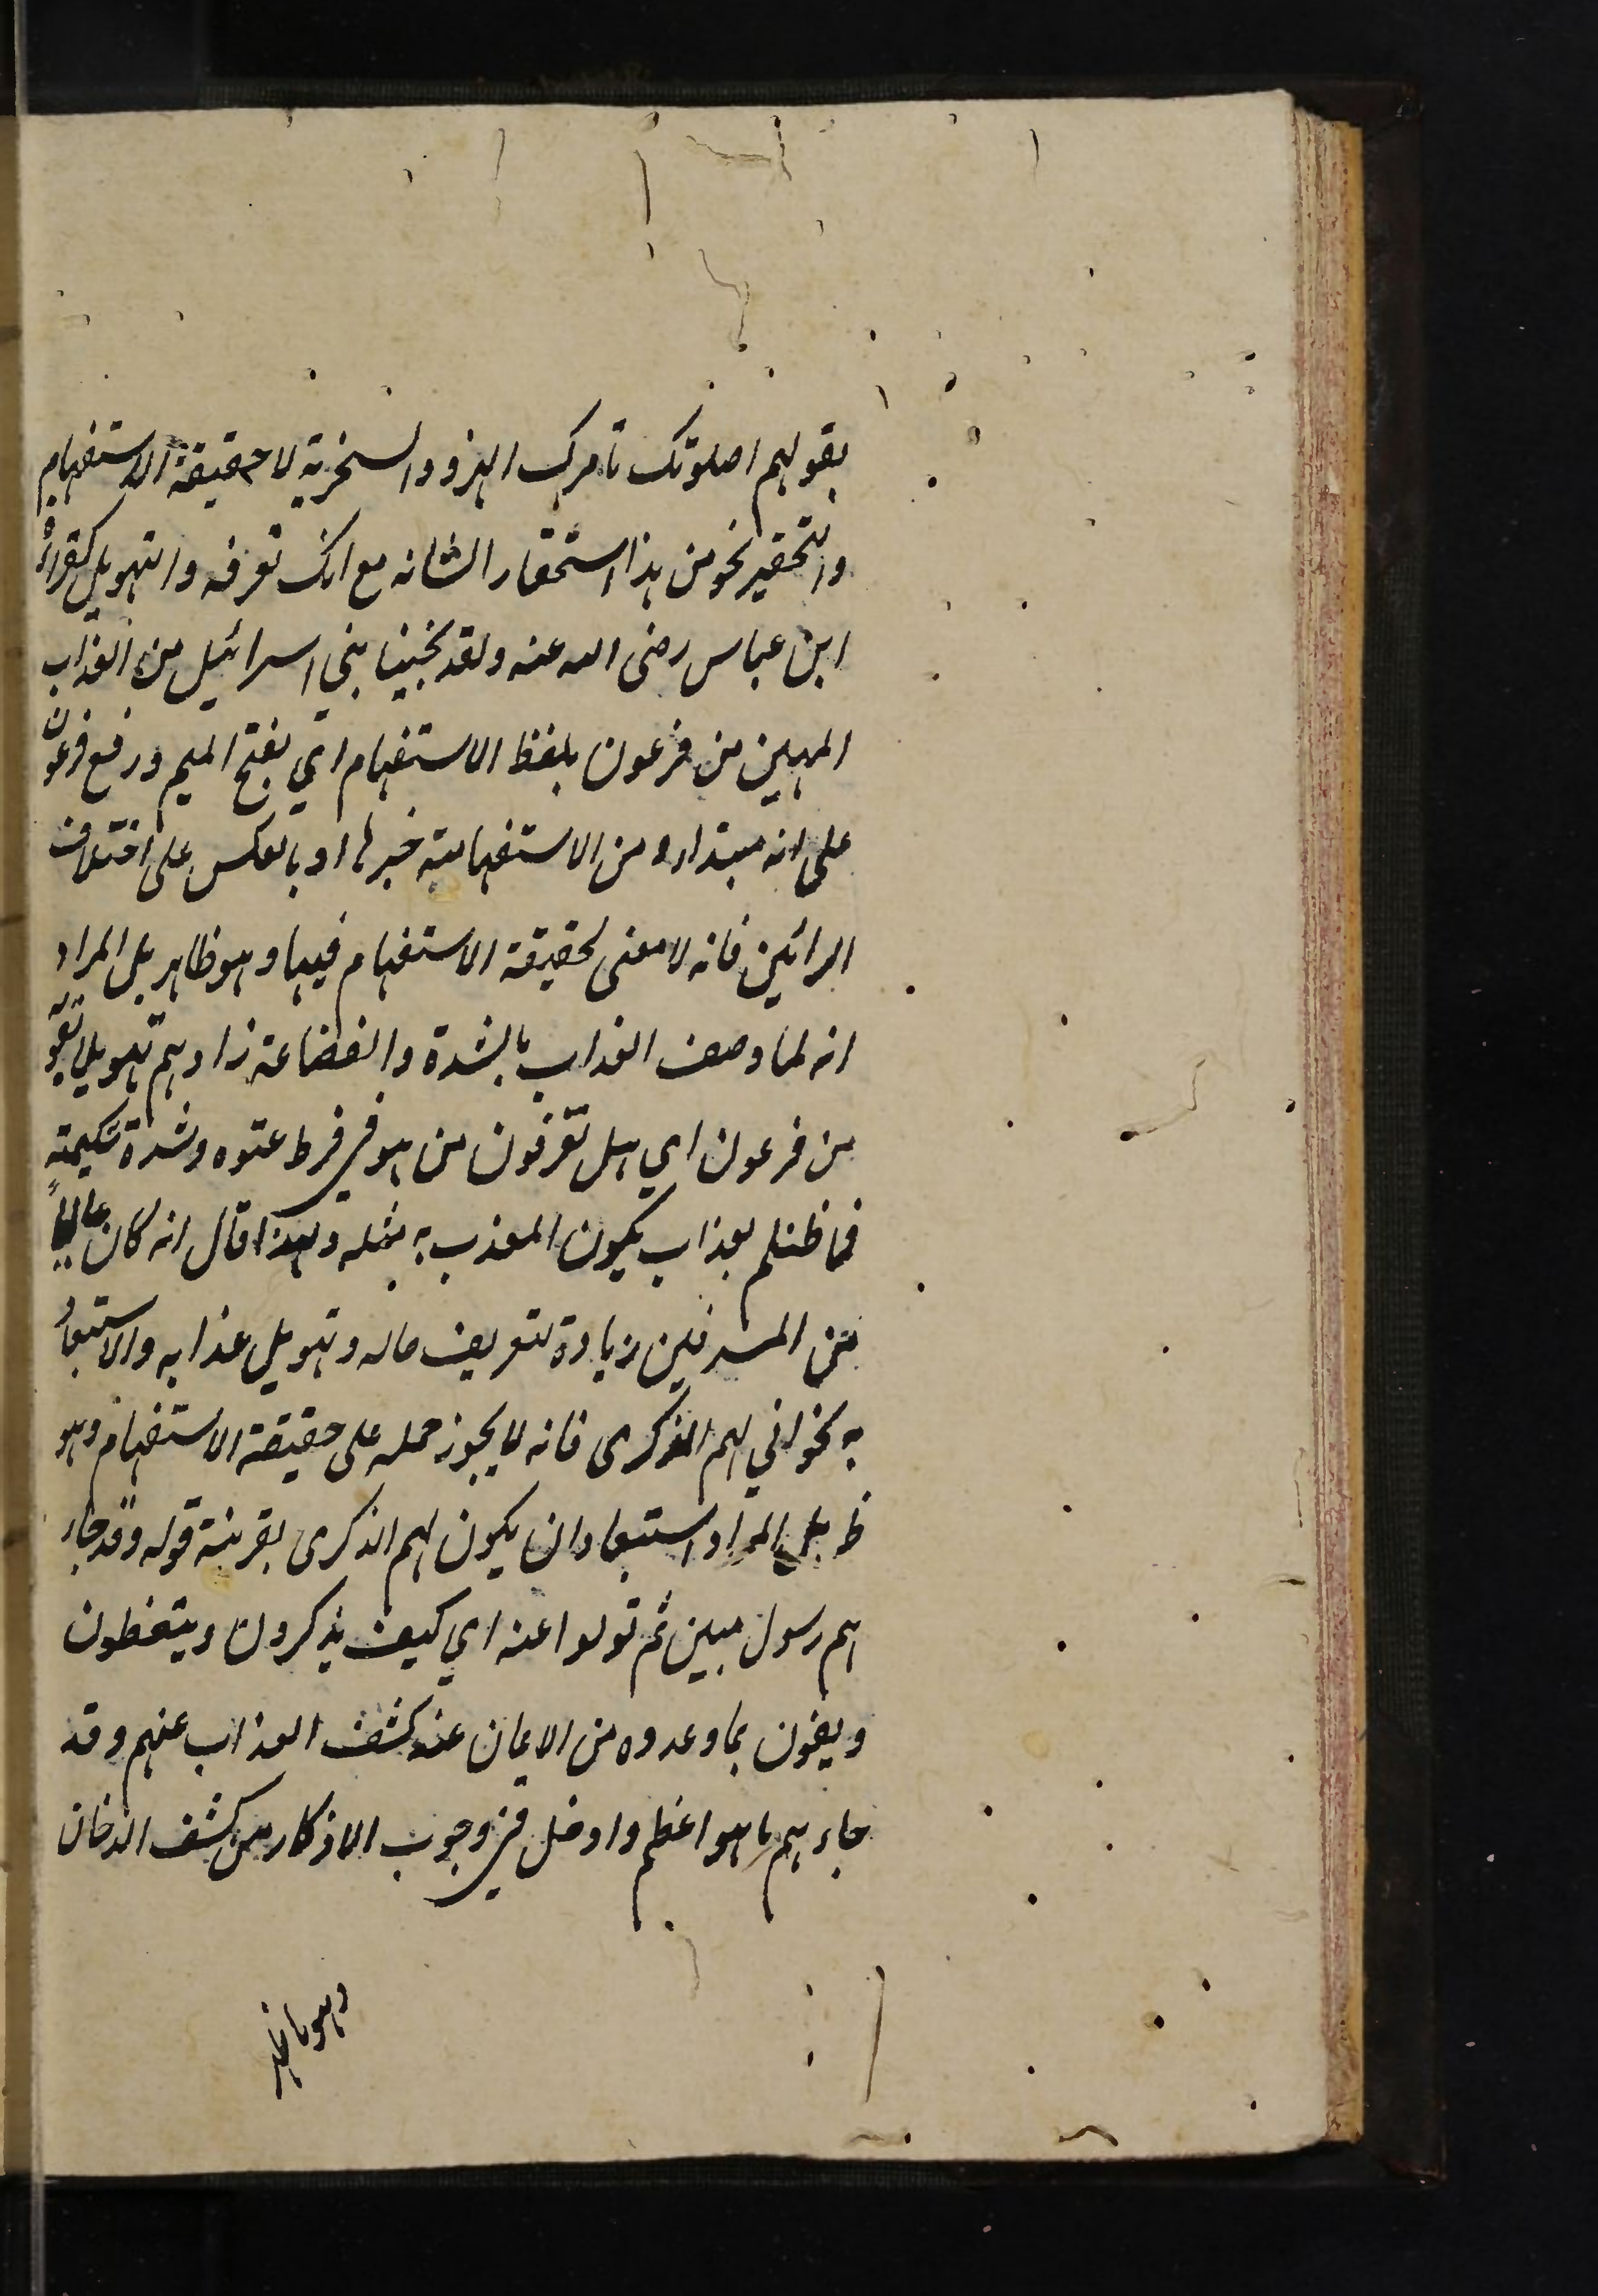 بقولهم اصلوتك تامرك الهزؤ والسخرية لا حقيقة الاستفهام
والتحقير نحو من هذا استحقار الشانه مع انك تعرفه والتهويل كقراءة
ابن عباس رضى الله عنه ولقد نجينا بني اسرائيل من العذاب
المهين من فرعون بلفظ الاستفهام اي بفتح الميم ورفع فرعون
على انه مبتداء ومن الاستفهامية خبرها او بالعكس على اختلاف
الرائين فانه لا معنى لحقيقة الاستفهام فيها وهو ظاهر بل المراد
انه لما وصف العذاب بالشدة والفضاعة زادهم تهويلا بقوله
من فرعون اي هل تعرفون من هو في فرط عتوه وشدة شكيمته
فما ظنكم بعذاب يكون المعذب به مثله ولهذا قال انه كان عاليا
من المسرفين زيادة لتعريف حاله وتهويل عذابه والاستبعاد
به نحو اني لهم الذكرى فانه لا يجوز حمله على حقيقة الاستفهام وهو
ظ بل المراد استبعاد ان يكون لهم الذكرى بقرينة قوله وقد جاء
هم رسول مبين ثم تولوا عنه اي كيف يذكرون ويتعظون
ويفون بما وعدوه من الايمان عند كشف العذاب عنهم وقد
جاءهم ما هو اعظم وادخل في وجوب الاذكار من كشف الدخان
وهو ما ظهر